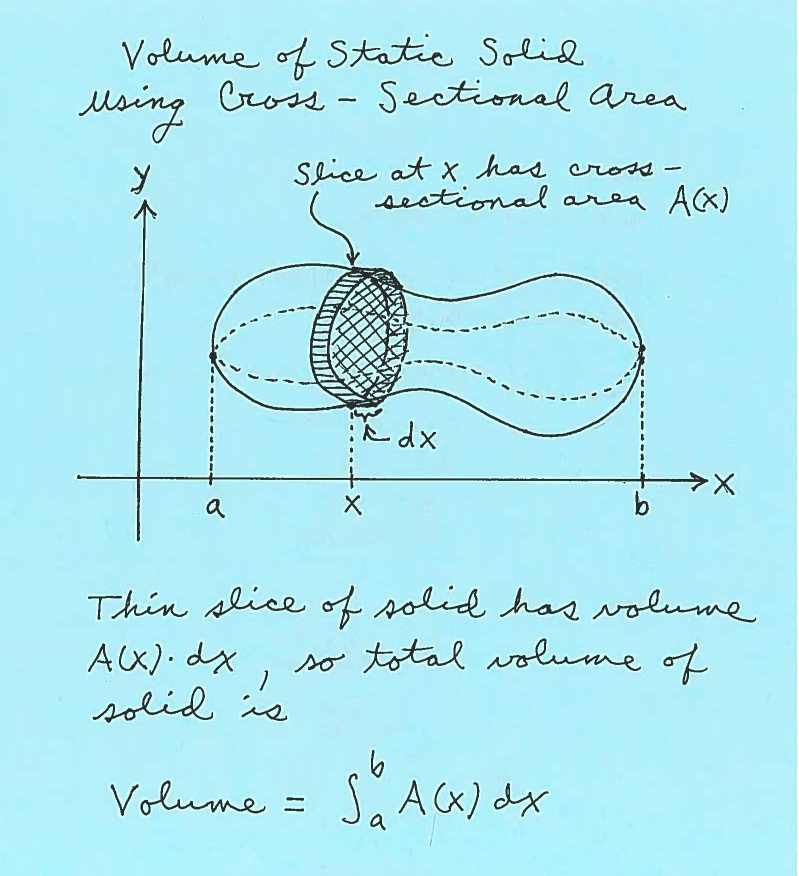 Volume of Static Solid
Using Cross-Sectional Area
y
Slice at x has cross-
sectional area A(x)
dx
x
a
x
b
Thin slice of solid has volume
A(x)·dx, so total volume of
solid is
Volume = ∫_a^b A(x) dx